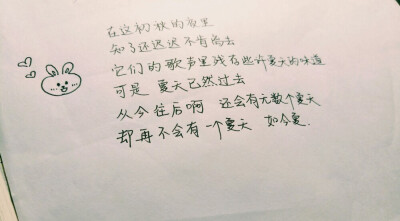 在这初秋的夜里
知了还迟迟不肯离去
它们的歌声里残存些许夏天的味道
可是 夏天已然过去
从今往后啊 还会有无数个夏天
却再不会有一个夏天 如今夏.